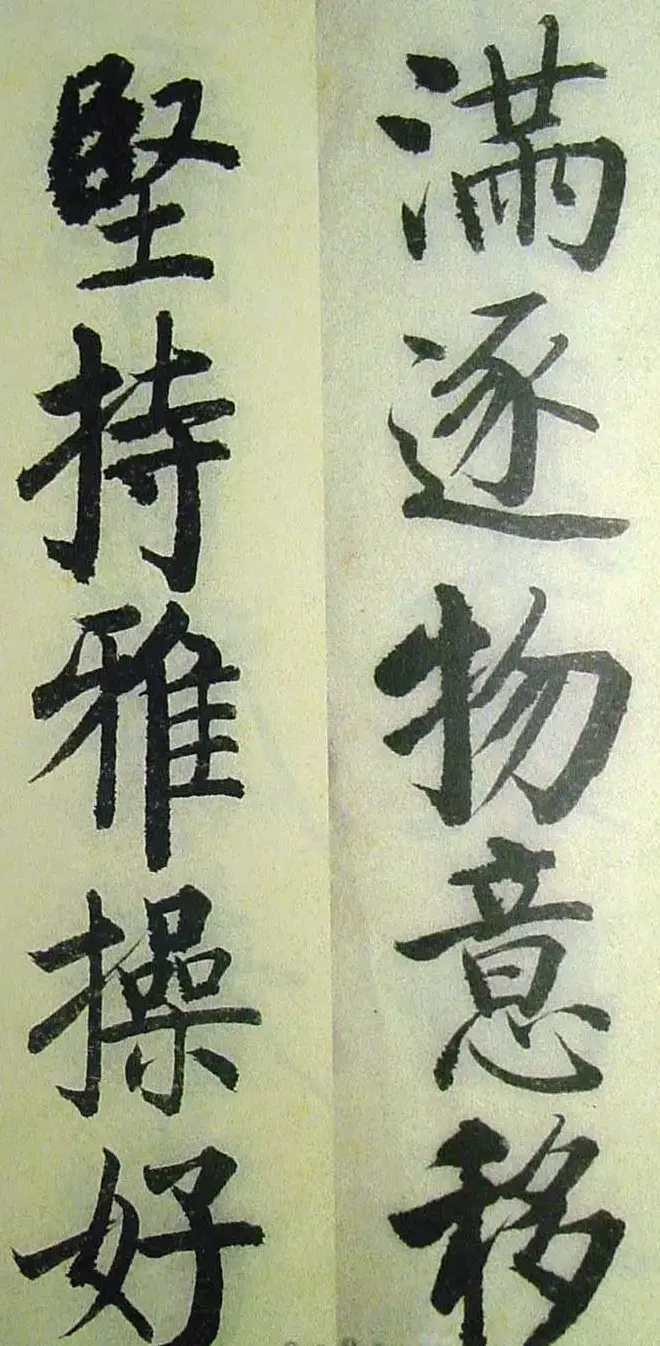 滿逐物意移
堅持雅操好